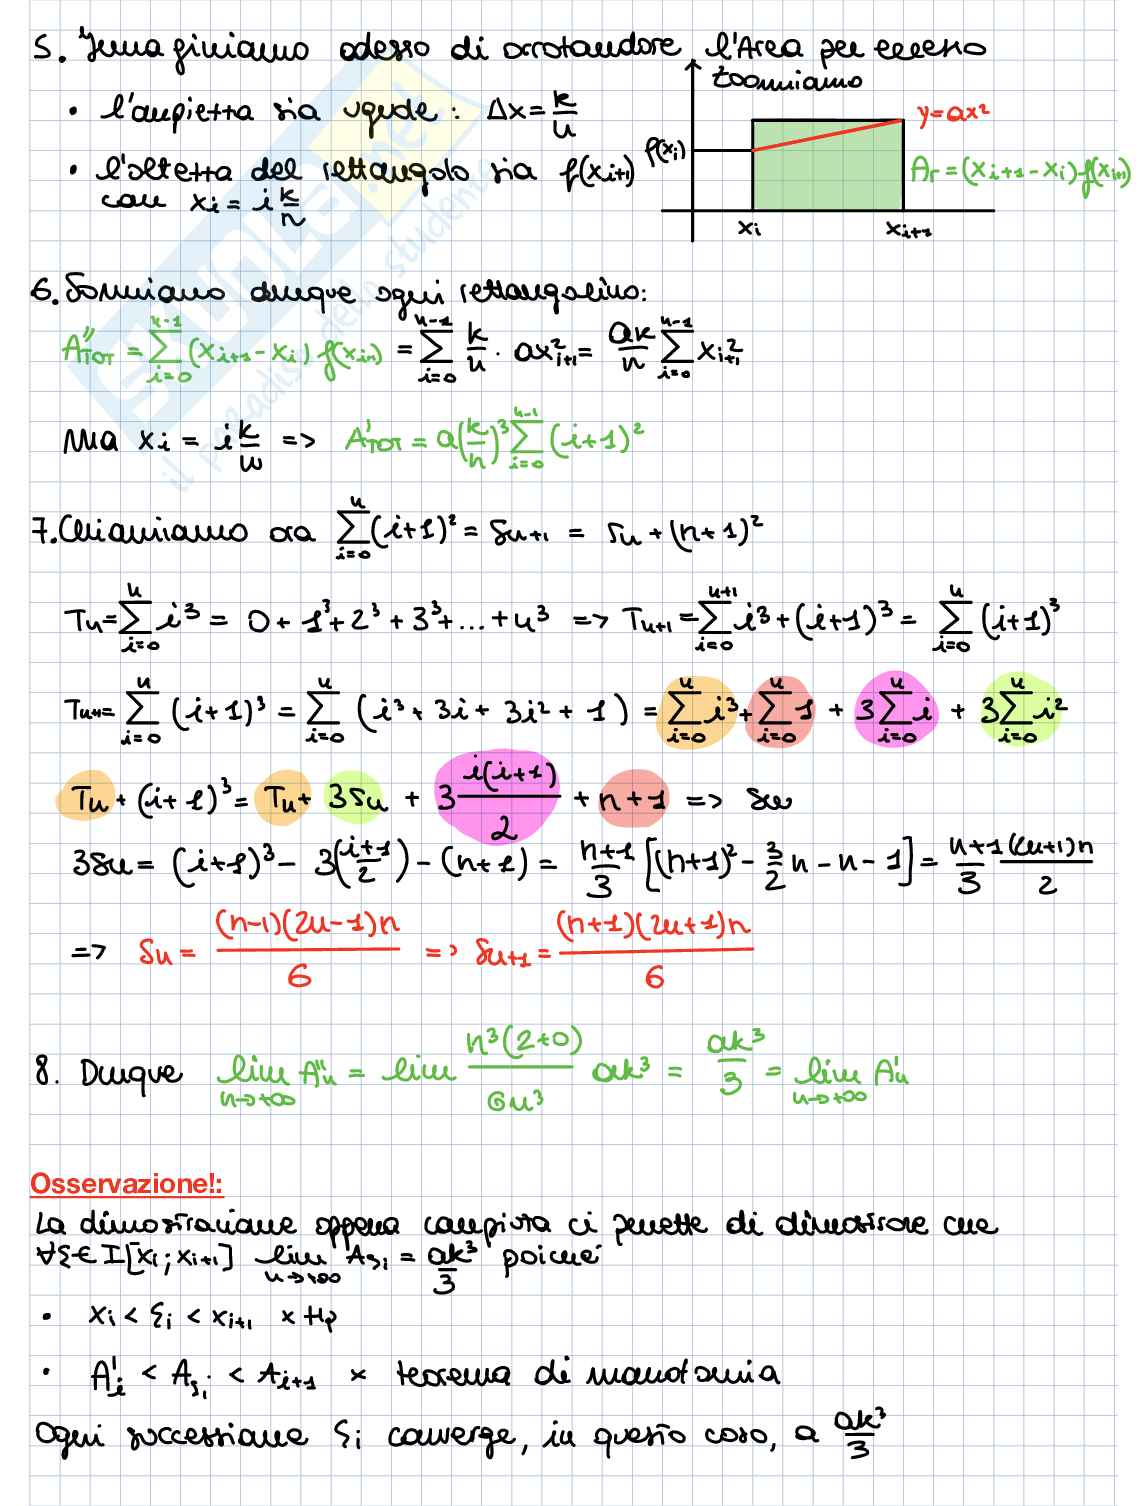 5. Immaginiamo adesso di arrotondare l'Area per eccesso
zoommiamo
• l'ampiezza sia uguale : Δx = k/n
y=ax²
f(xᵢ)
• l'altezza del rettangolo sia f(xᵢ₊₁)
con xᵢ = i k/n
Aᵣ = (xᵢ₊₁ - xᵢ) f(xᵢ₊₁)
xᵢ xᵢ₊₁
6. Sommiamo dunque ogni rettangolino:
A''TOT = ∑ᵢ₌₀ⁿ⁻¹ (xᵢ₊₁ - xᵢ) f(xᵢ₊₁) = ∑ᵢ₌₀ⁿ⁻¹ k/n · ax²ᵢ₊₁ = ak/n ∑ᵢ₌₀ⁿ⁻¹ xᵢ₊₁²
ma xᵢ = i k/n => A'TOT = a(k/n)³ ∑ᵢ₌₀ⁿ⁻¹ (i+1)²
7. Chiamiamo ora ∑ᵢ₌₀ⁿ (i+1)² = Sₙ₊₁ = Sₙ + (n+1)²
Tₙ = ∑ᵢ₌₀ⁿ i³ = 0 + 1³ + 2³ + 3³ + ... + n³ => Tₙ₊₁ = ∑ᵢ₌₀ⁿ⁺¹ i³ + (i+1)³ = ∑ᵢ₌₀ⁿ (i+1)³
Tₙ₊₁ = ∑ᵢ₌₀ⁿ (i+1)³ = ∑ᵢ₌₀ⁿ (i³ + 3i + 3i² + 1) = ∑ᵢ₌₀ⁿ i³ + ∑ᵢ₌₀ⁿ 1 + 3∑ᵢ₌₀ⁿ i + 3∑ᵢ₌₀ⁿ i²
Tₙ + (i+1)³ = Tₙ + 3Sₙ + 3 i(i+1)/2 + n+1 =>
3Sₙ = (i+1)³ - 3(i+1/2) - (n+1) = n+1/3 [(n+1)² - 3/2 n - n - 1] = n+1/3 ((2n+1)n/2
=> Sₙ = (n-1)(2n-1)n/6 => Sₙ₊₁ = (n+1)(2n+1)n/6
8. Dunque lim n→+∞ A''ₙ = lim n³(2+0)/6n³ ak³ = ak³/3 = lim n→+∞ A'ₙ
Osservazione!:
La dimostrazione appena compiuta ci permette di dimostrare che
∀ξ∈I[xᵢ; xᵢ₊₁] lim n→+∞ Aξᵢ = ak³/3 poiché
• xᵢ < ξᵢ < xᵢ₊₁ x Hp
• A'ᵢ < Aξᵢ < Aᵢ₊₁ x teorema di monotonia
Ogni successione ξᵢ converge, in questo caso, a ak³/3
il paradiso dello studente